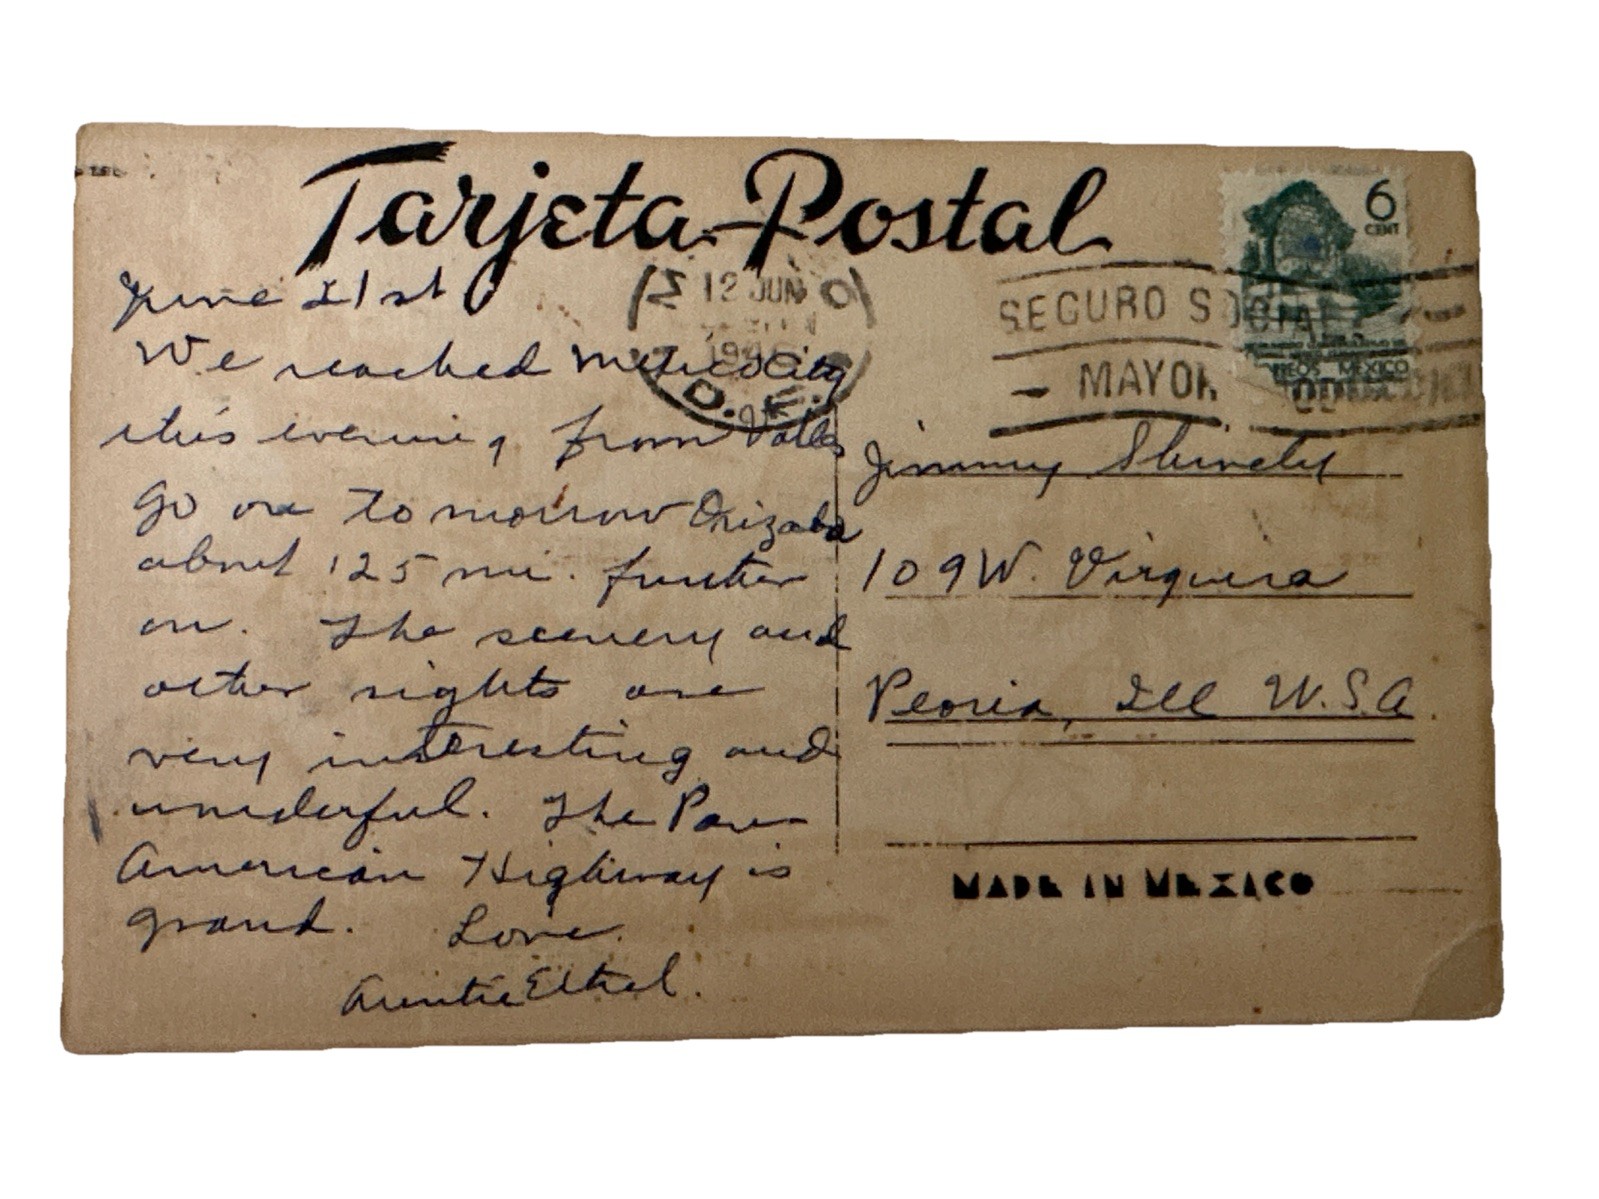 Tarjeta Postal
June 21st
We reached Mexico City
this evening from Valles
Go on tomorrow Orizaba
about 125 mi. further
on. The scenery and
other sights are
very interesting and
wonderful. The Pan
American Highway is
grand. Love
Auntie Ethel.
12 JUN
D. F.
6
CENT
SEGURO SOCIAL
MAYOR
MEXICO
Jimmy Shively
109 W. Virginia
Peoria, Ill U.S.A.
MADE IN MEXICO